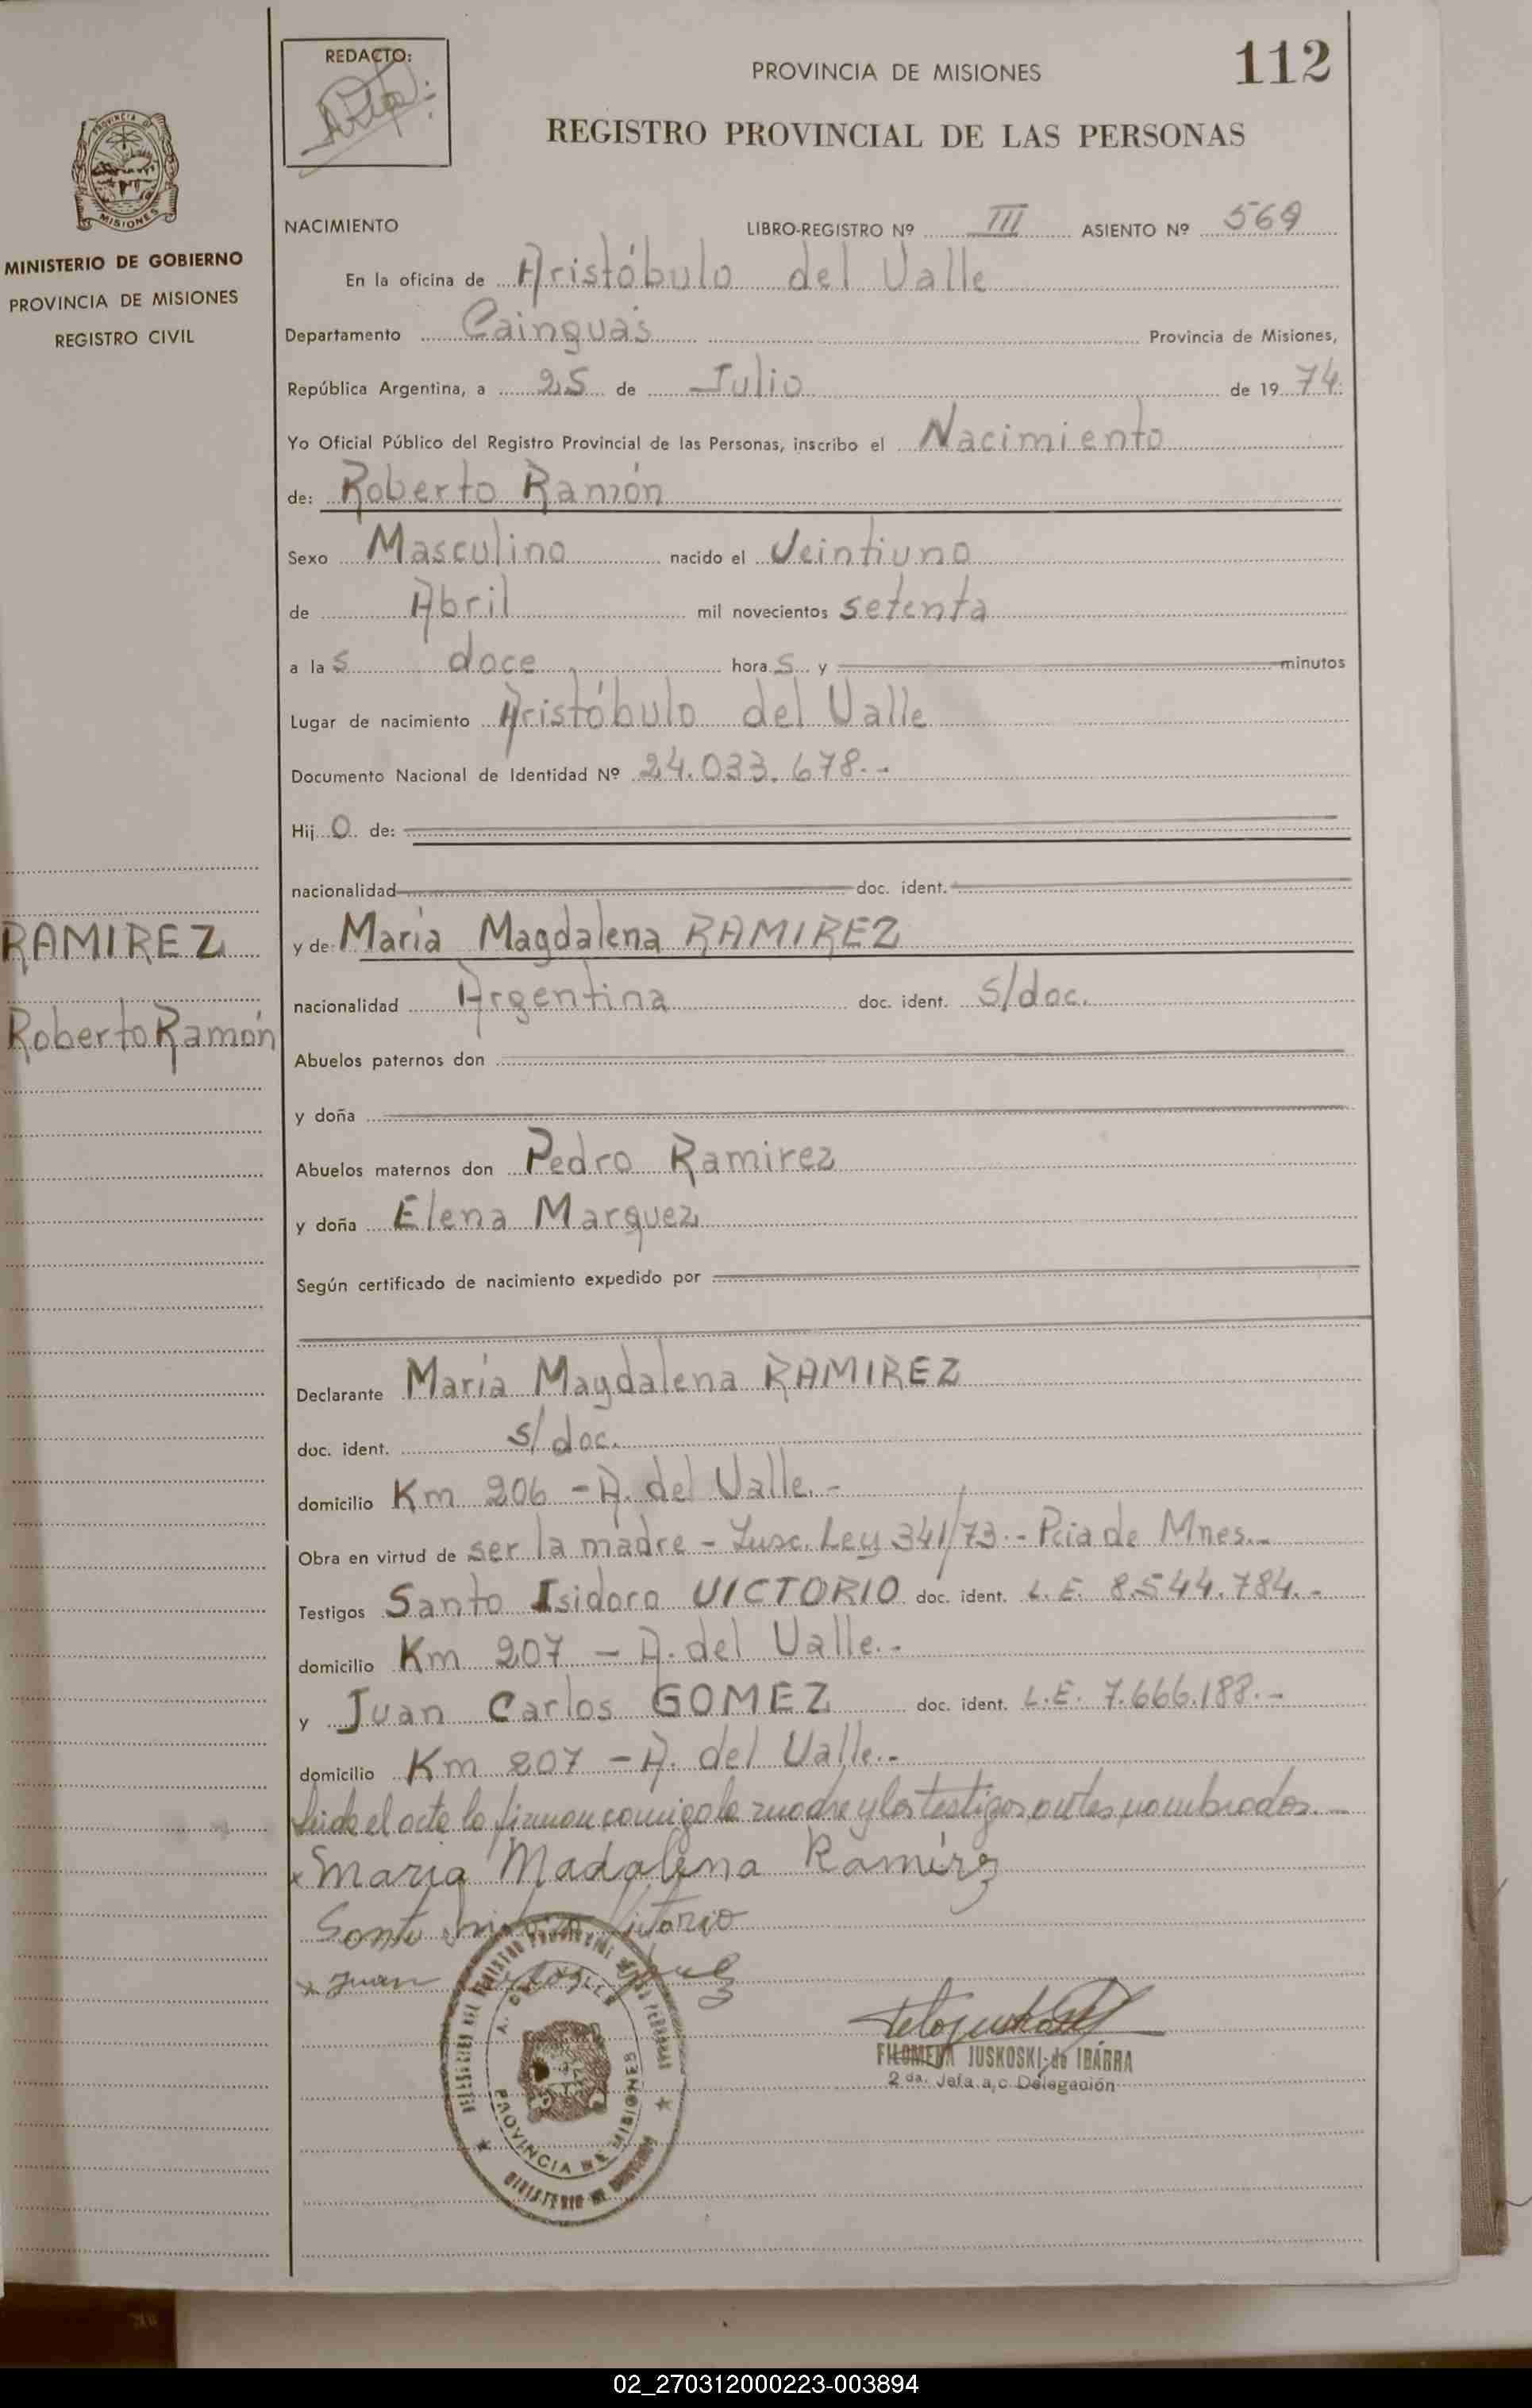 REDACTO:
PROVINCIA DE MISIONES
112
REGISTRO PROVINCIAL DE LAS PERSONAS
MISIONES
MINISTERIO DE GOBIERNO
PROVINCIA DE MISIONES
REGISTRO CIVIL
NACIMIENTO LIBRO-REGISTRO Nº III ASIENTO Nº 569
En la oficina de Aristóbulo del Valle
Departamento Cainguás Provincia de Misiones,
República Argentina, a 25 de Julio de 1974.
Yo Oficial Público del Registro Provincial de las Personas, inscribo el Nacimiento
de: Roberto Ramón
Sexo Masculino nacido el Veintiuno
de Abril mil novecientos setenta
a las doce horas y minutos
Lugar de nacimiento Aristóbulo del Valle
Documento Nacional de Identidad Nº 24.033.678.-
Hijo de:
nacionalidad doc. ident.
RAMIREZ
y de: María Magdalena RAMIREZ
nacionalidad Argentina doc. ident. s/doc.
Roberto Ramón
Abuelos paternos don
y doña
Abuelos maternos don Pedro Ramirez
y doña Elena Marquez
Según certificado de nacimiento expedido por
Declarante María Magdalena RAMIREZ
doc. ident. s/doc.
domicilio Km 206 - A. del Valle.-
Obra en virtud de ser la madre - Insc. Ley 341/73.- Pcia de Mnes.-
Testigos Santo Isidoro VICTORIO doc. ident. L.E. 8.544.784.-
domicilio Km 207 - A. del Valle.-
y Juan Carlos GOMEZ doc. ident. L.E. 7.666.188.-
domicilio Km 207 - A. del Valle.-
Leida el acta la firman conmigo la madre y los testigos antes nombrados.-
x Maria Madalena Ramirez
Santo Vitorio
x Juan
A. DEL VALLE
PROVINCIA DE MISIONES
FILOMENA JUSKOSKI de IBARRA
2da. Jefa a/c Delegación
02_270312000223-003894